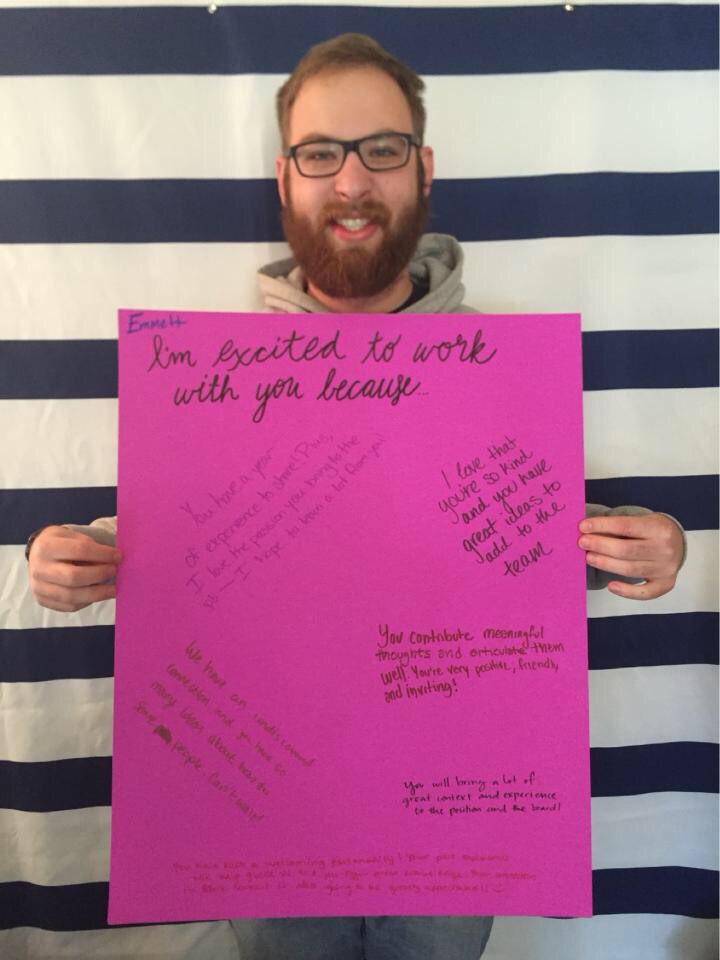 Emmett
I'm excited to work
with you because...
You have a year
of experience to share! Plus,
I love the passion you bring to the
I hope to learn a lot from you!
I love that
you're so kind
and you have
great ideas to
add to the
team
You contribute meaningful
thoughts and articulate them
well. You're very positive, friendly,
and inviting!
We have an undiscovered
connection and you have so
many ideas about how to
serve people. Can't wait!
You will bring a lot of
great context and experience
to the position and the board!
You have such a welcoming personality! Your past experience
will help guide us and your
is also going to be greatly appreciated!! :)